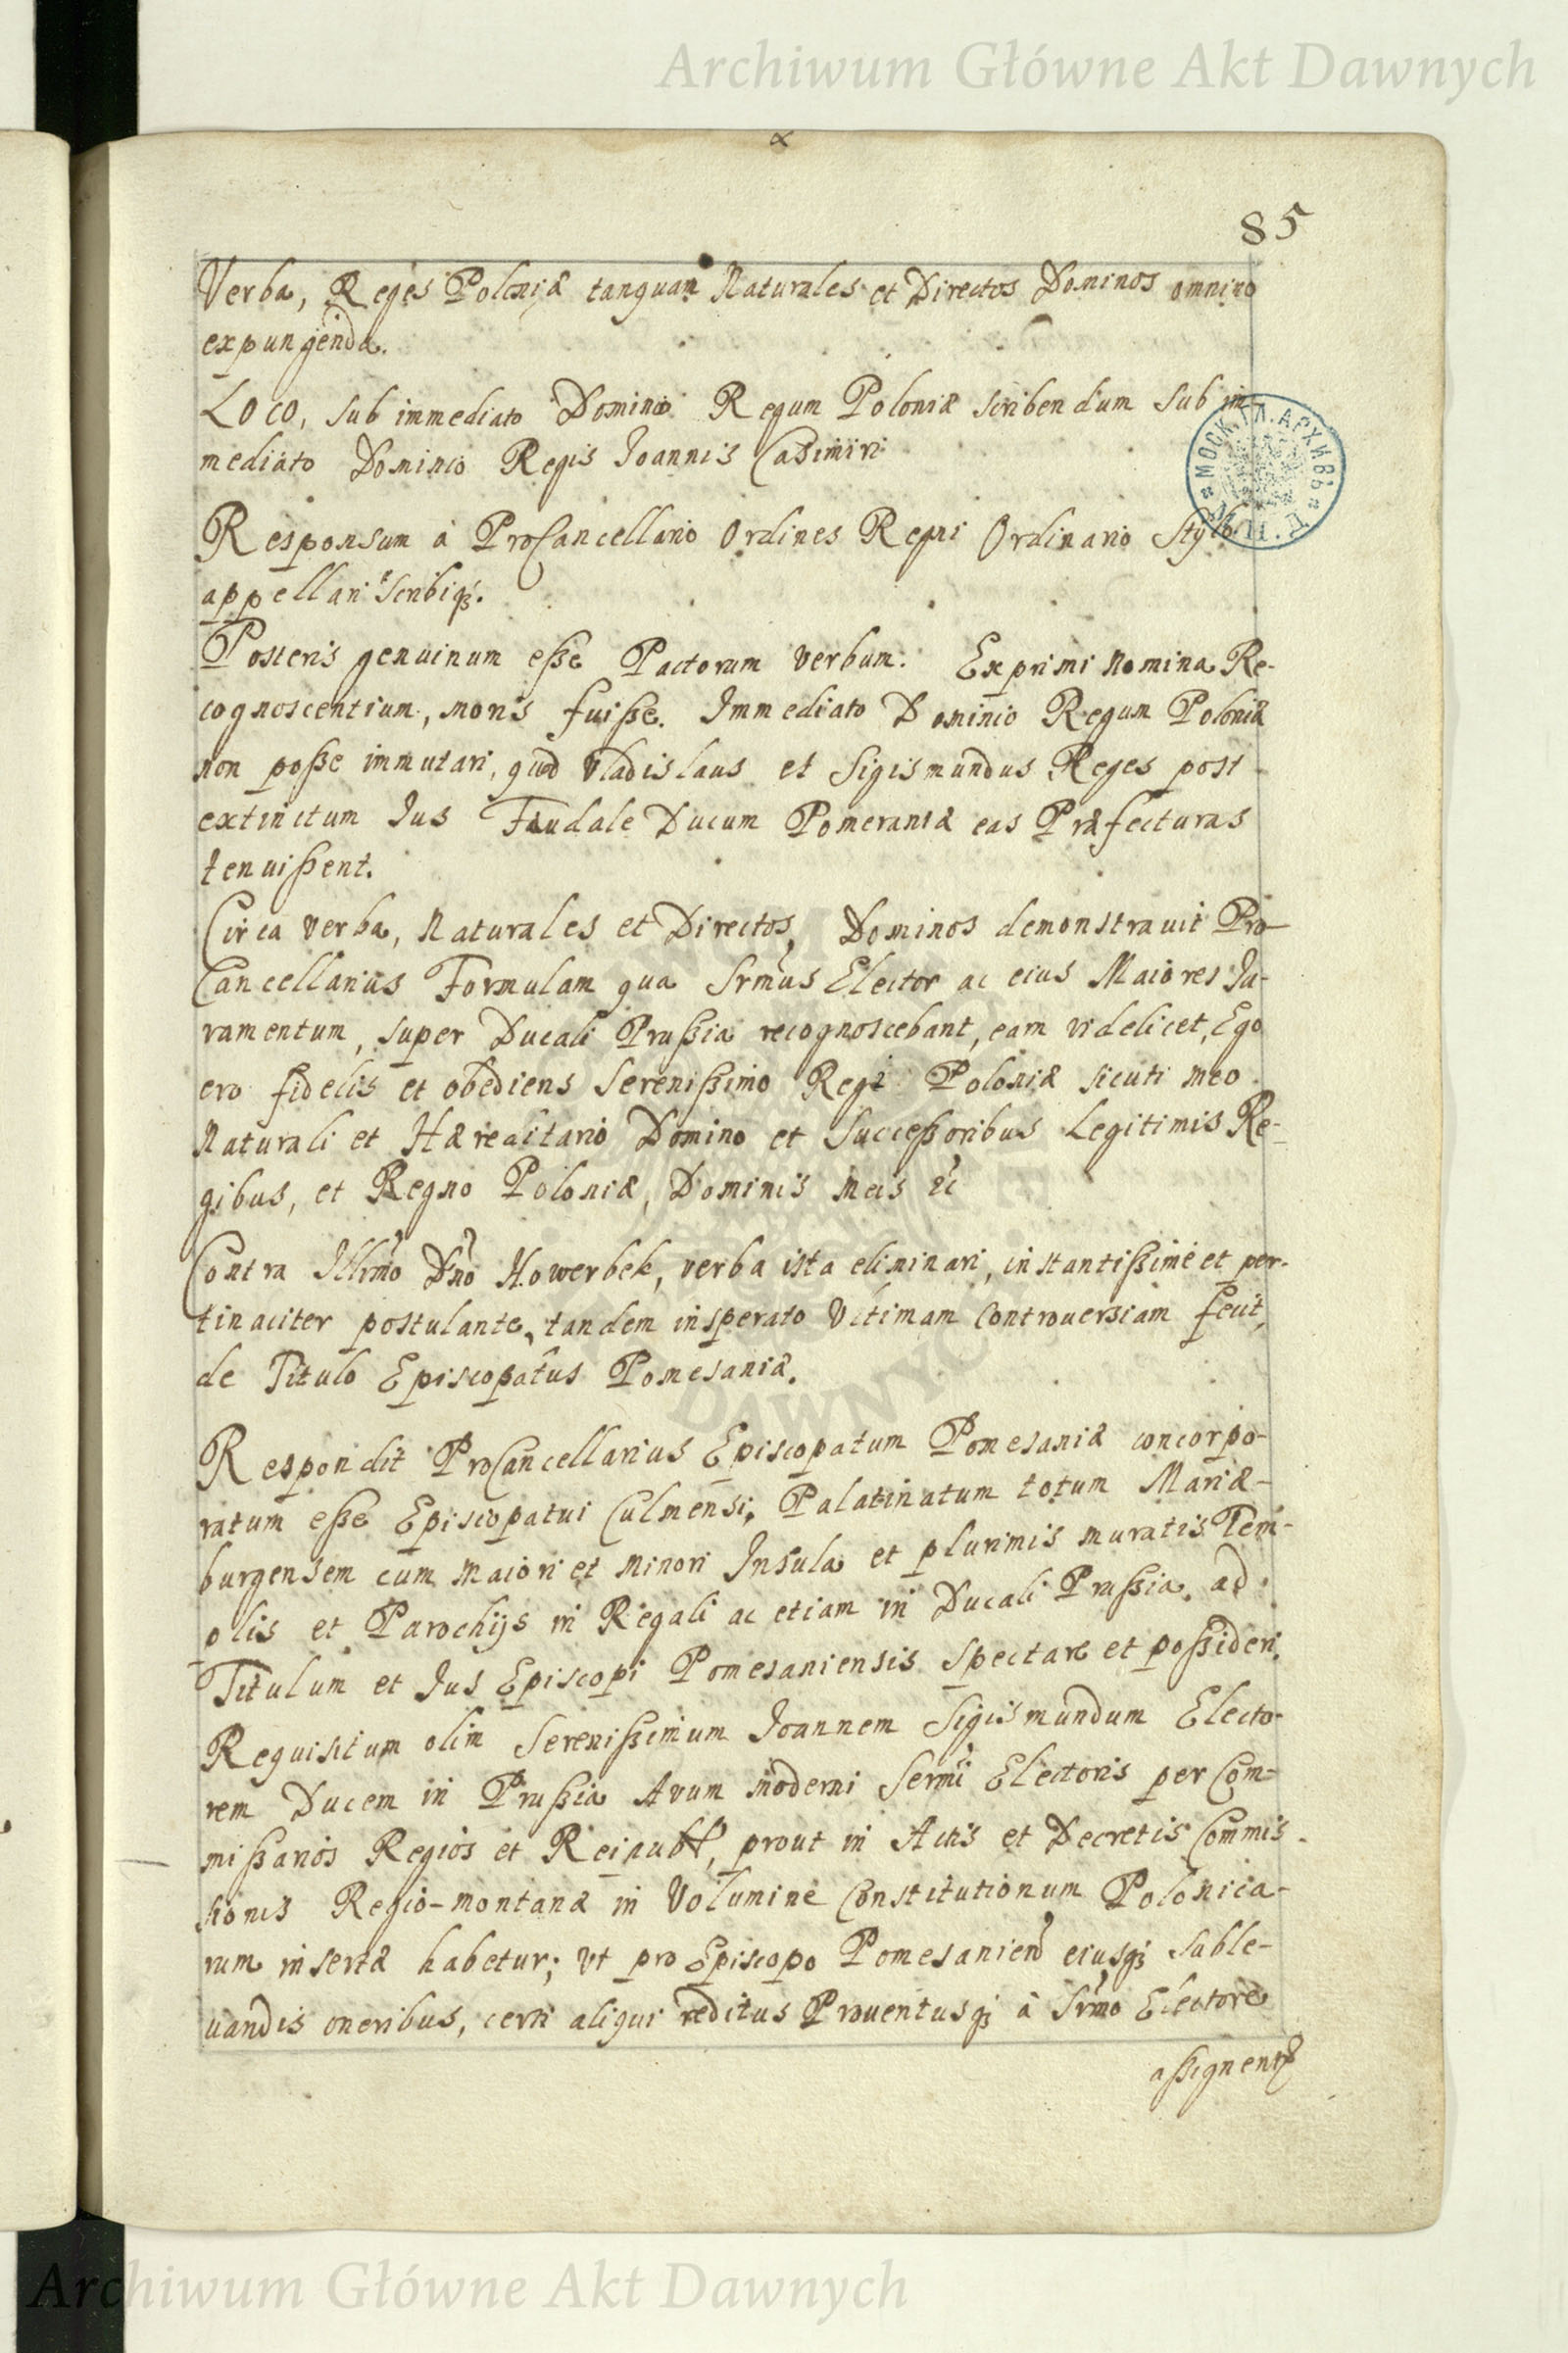 Archiwum Główne Akt Dawnych
85
Verba, Reges Poloniæ tanquam Naturales et Directos Dominos omnino
expungenda.
Loco, sub immediato Dominio Regum Poloniæ scribendum sub im-
mediato Dominio Regis Joannis Casimiri
Responsum à ProCancellario Ordines Regni Ordinario Stylo
appellari scribiq;.
Posteris genuinum esse Pactorum verbum. Exprimi nomina Re-
cognoscentium, moris fuisse. Immediato Dominio Regum Poloniæ
non posse immutari, quod Vladislaus et Sigismundus Reges post
extinctum Jus Faudale Ducum Pomeraniæ eas Præfecturas
tenuissent.
Circa verba, Naturales et Directos, Dominos demonstravit Pro-
Cancellarius Formulam qua Srmus Elector ac eius Maiores Ju-
ramentum, super Ducali Prussia recognoscebant, eam videlicet, Ego
ero fidelis et obediens Serenissimo Regi Poloniæ sicuti meo
Naturali et Hæreditario Domino et Successoribus Legitimis Re-
gibus, et Regno Poloniæ, Dominis meis &c
Contra Illrmo Dno Howerbek, verba ista eliminari, instantissimè et per-
tinaciter postulante, tandem insperato Vltimam Controuersiam fecit,
de Titulo Episcopatûs Pomesaniæ.
Respondit ProCancellarius Episcopatum Pomesaniæ concorpo-
ratum esse Episcopatui Culmensi, Palatinatum totum Mariæ-
burgensem cum Maiori et Minori Insula et plurimis muratis Tem-
plis et Parochijs in Regali ac etiam in Ducali Prussia, ad
Titulum et Jus Episcopi Pomesaniensis spectare et possideri.
Requisitum olim Serenissimum Joannem Sigismundum Electo-
rem Ducem in Prussia Avum moderni Sermi Electoris per Com-
missarios Regios et Reipubl, prout in Actis et Decretis Commis-
sionis Regio-montanæ in Volumine Constitutionum Polonica-
rum insertæ habetur; vt pro Episcopo Pomesanien eiusq; suble-
uandis oneribus, certi aliqui reditus Prouentusq; à Srmo Electore
assignentr
Archiwum Główne Akt Dawnych